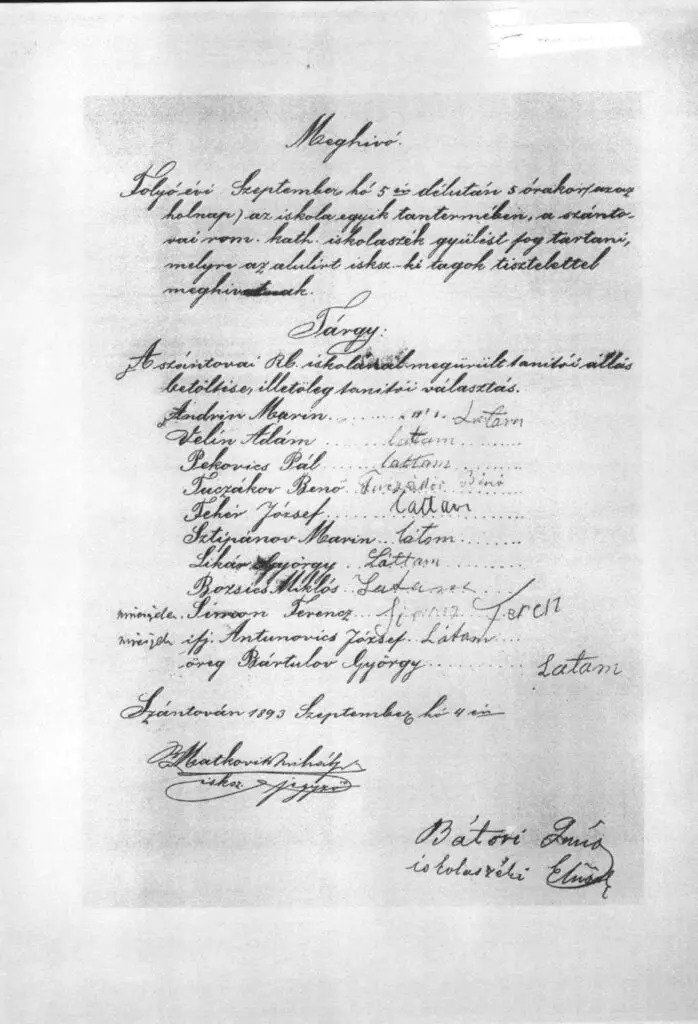 Meghivó.
Folyó évi Szeptember hó 5 én délután 5 órakor (azaz
holnap) az iskola egyik tantermében, a szánto-
vai rom. kath. iskolaszék gyülést fog tartani,
melyre az alulirt isksz.-ki tagok tisztelettel
meghivatnak.
Tárgy:
A szántovai Rk. iskolánál megürült tanitói állás
betöltése, illetöleg tanitói választás.
Andrin Marin ........ Latam
Velin Ádám ....... latam ........
Pekovics Pál ..... lattam ........
Tuczákov Benó Benó
Fehér József ....... Lattam ......
Sztipánov Marin .. látom .......
Likár György .. Láttam ........
Bozsics Miklós
Simon Ferencz
ifj. Antunovics József. Látam ....
öreg Bártulov György ........ Latam
Szántován 1893 Szeptember hó 4 én
Matkovits Mihály
isksz. jegyző
Bátori
iskolaszéki